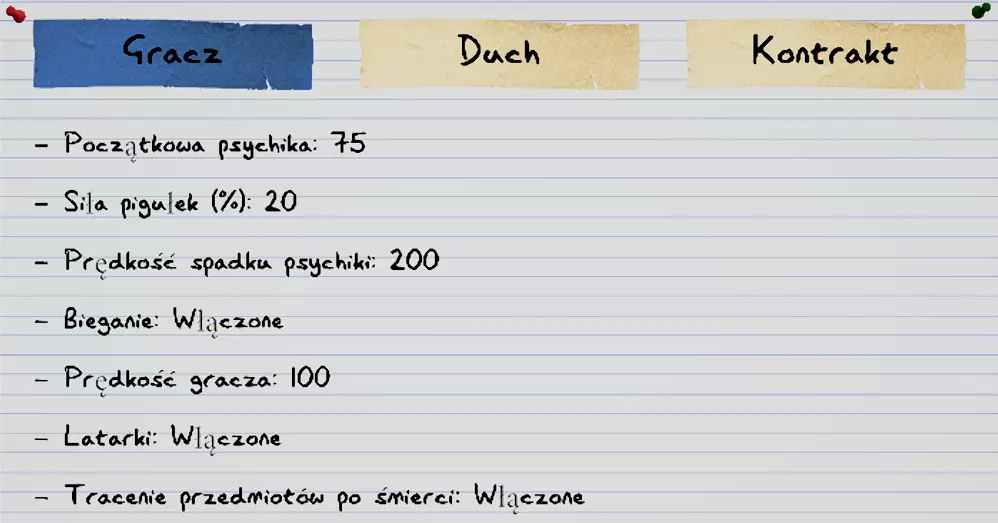 Gracz Duch Kontrakt
- Początkowa psychika: 75
- Siła pigułek (%): 20
- Prędkość spadku psychiki: 200
- Bieganie: Włączone
- Prędkość gracza: 100
- Latarki: Włączone
- Tracenie przedmiotów po śmierci: Włączone